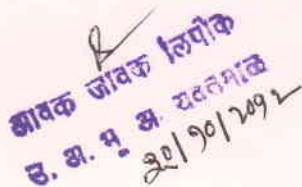 आवक जावक लिपीक
उ. अ. भू. अ. यवतमाळ
३०/१०/२०१२